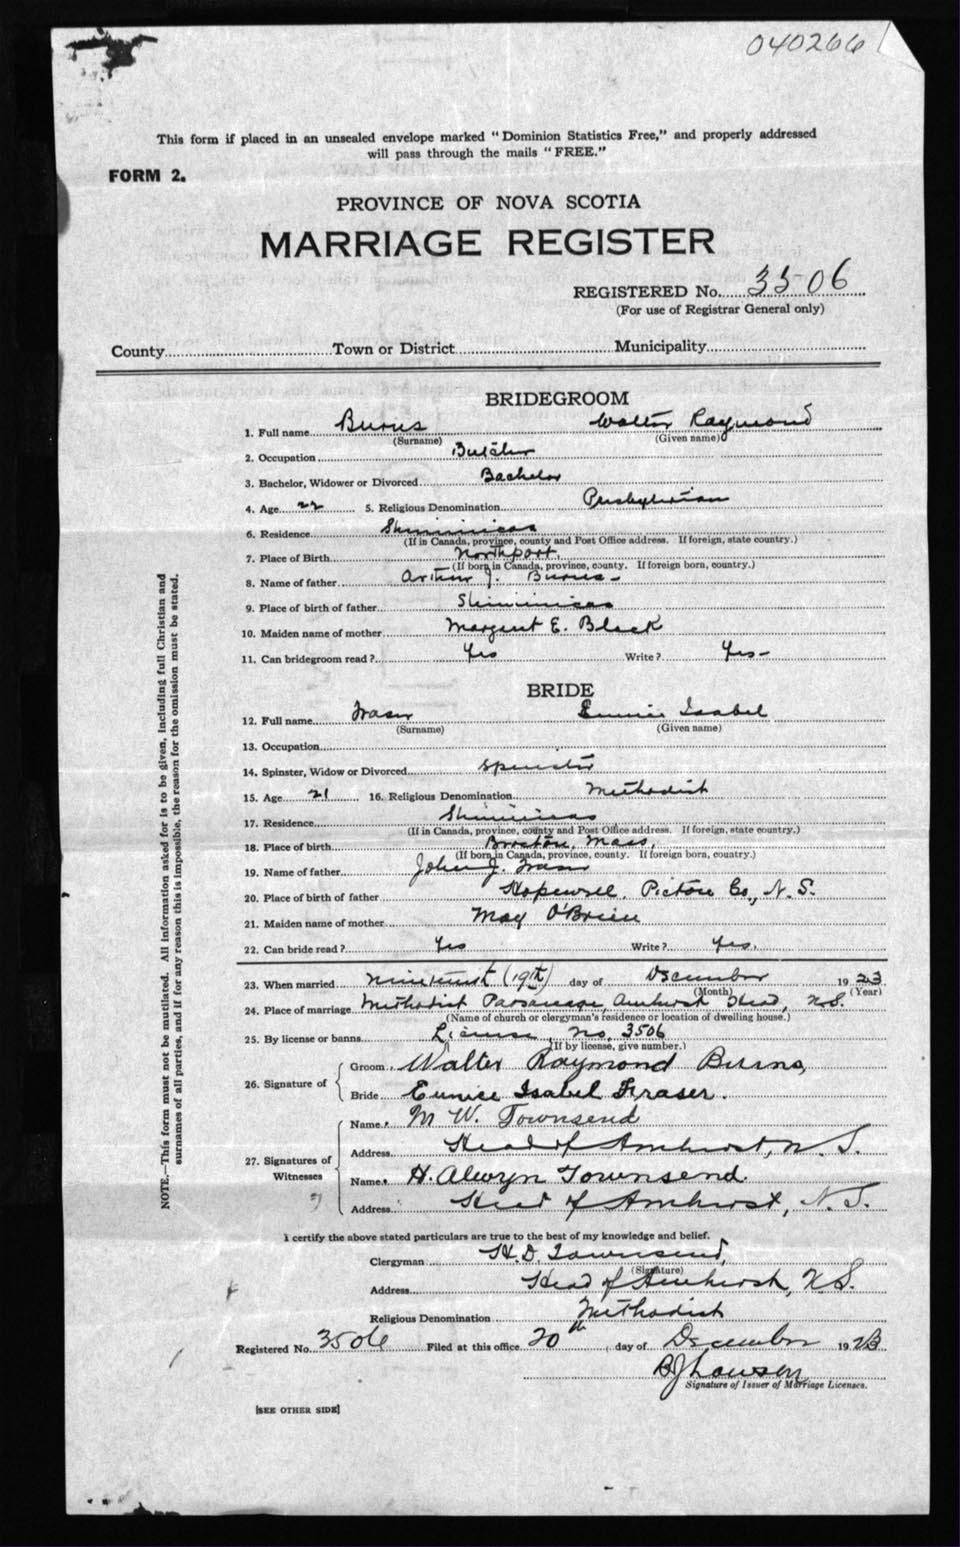 040266
This form if placed in an unsealed envelope marked "Dominion Statistics Free," and properly addressed
will pass through the mails "FREE."
FORM 2.
PROVINCE OF NOVA SCOTIA
MARRIAGE REGISTER
REGISTERED No. 3506
(For use of Registrar General only)
County Town or District Municipality
BRIDEGROOM
1. Full name Burns Walter Raymond
(Surname) (Given name)
2. Occupation Butcher
3. Bachelor, Widower or Divorced Bachelor
4. Age 22 5. Religious Denomination Presbyterian
6. Residence Shinimicas
(If in Canada, province, county and Post Office address. If foreign, state country.)
7. Place of Birth Northport.
(If born in Canada, province, county. If foreign born, country.)
8. Name of father Arthur J. Burns
9. Place of birth of father Shinimicas
10. Maiden name of mother Margaret E. Black
11. Can bridegroom read? Yes Write? Yes
BRIDE
12. Full name Fraser Eunice Isabel
(Surname) (Given name)
13. Occupation
14. Spinster, Widow or Divorced Spinster
15. Age 21 16. Religious Denomination Methodist
17. Residence Shinimicas
(If in Canada, province, county and Post Office address. If foreign, state country.)
18. Place of birth Mass,
(If born in Canada, province, county. If foreign born, country.)
19. Name of father John J. Fraser
20. Place of birth of father Hopewell, Pictou Co., N.S.
21. Maiden name of mother May O'Brien
22. Can bride read? Yes Write? Yes.
23. When married nineteenth (19th) day of December 1923
(Month) (Year)
24. Place of marriage Methodist Parsonage Amherst Head, N.S.
(Name of church or clergyman's residence or location of dwelling house.)
25. By license or banns License No. 3506
(If by license, give number.)
26. Signature of Groom Walter Raymond Burns,
Bride Eunice Isabel Fraser.
27. Signatures of Witnesses Name M W. Townsend
Address Head of Amherst, N. S.
Name H. Alwyn Townsend.
Address Head of Amherst, N.S.
I certify the above stated particulars are true to the best of my knowledge and belief.
Clergyman H. D. Townsend,
(Signature)
Address Head of Amherst, N.S.
Religious Denomination Methodist
Registered No. 3506 Filed at this office 20th day of December 1923
Signature of Issuer of Marriage Licenses.
[SEE OTHER SIDE]
NOTE.—This form must not be mutilated. All information asked for is to be given, including full Christian and
surnames of all parties, and if for any reason this is impossible, the reason for the omission must be stated.